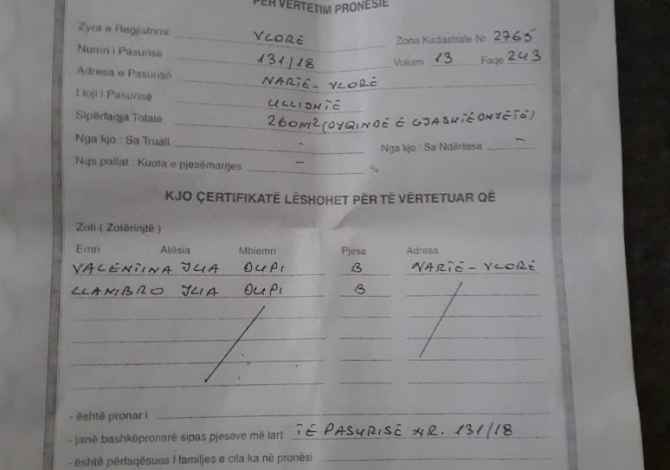 PËR VËRTETIM PRONËSIE
Zyra e Regjistrimi VLORË Zona Kadastrale Nr. 2765
Numri i Pasurisë 131/18 Volumi 13 Faqe 243
Adresa e Pasurisë NARTË - VLORË
Lloji i Pasurisë ULLISHTË
Sipërfaqja Totale 260 M2 (DYQINDË E GJASHTËDHJETË)
Nga kjo : Sa Truall - Nga kjo : Sa Ndërtesa -
Nqs pallat : Kuota e pjesëmarrjes - %
KJO ÇERTIFIKATË LËSHOHET PËR TË VËRTETUAR QË
Zoti ( Zotërinjtë )
Emri Atësia Mbiemri Pjesa Adresa
VALENTINA ILIA DUPI B NARTË - VLORË
LLAMBRO ILIA DUPI B
- është pronar i
- janë bashkëpronarë sipas pjesëve më lart TË PASURISË NR. 131/18
- është përfaqësues i familjes e cila ka në pronësi